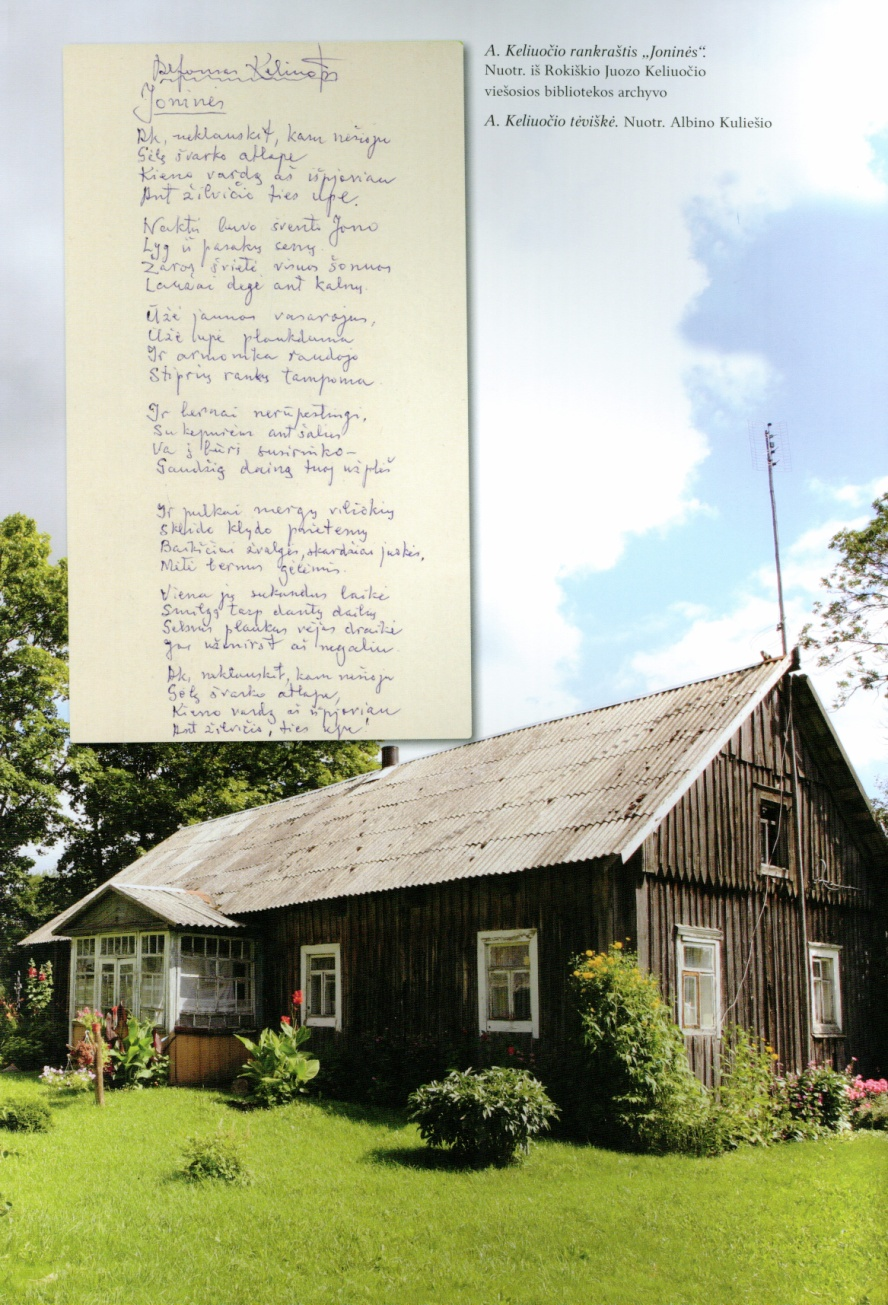 Alfonsas Keliuotis
Joninės
Ak, neklauskit, kam nešioju
Gėlę švarko atlape
Kieno vardą aš išpjoviau
Ant žilvičio ties upe.
Naktis buvo švento Jono
Lyg iš pasakų
Žaros švietė visuos šonuos
Laužai degė ant kalnų.
Ūžė jaunas vasarojus,
Ūžė upė plaukdama
Ir armonika raudojo
Stiprių rankų tampoma.
Ir bernai nerūpestingi,
Su kepurėm ant šalies
Va į būrį susirinko –
Gaudžią dainą tuoj užplėš
Ir pulkai mergų
Skleide klydo prietemų
žvalgės, skardžiai juokės,
Mėtė bernus gėlėmis.
Viena jų sukandus laikė
Smilgą tarp dantų dailių
Šelsvus plaukus vėjas draikė
Jos užmiršt aš negaliu.
Ak, neklauskit, kam nešioju
Gėlę švarko atlape,
Kieno vardą aš išpjoviau
Ant žilvičio, ties upe!
A. Keliuočio rankraštis „Joninės“.
Nuotr. iš Rokiškio Juozo Keliuočio
viešosios bibliotekos archyvo
A. Keliuočio tėviškė. Nuotr. Albino Kuliešio